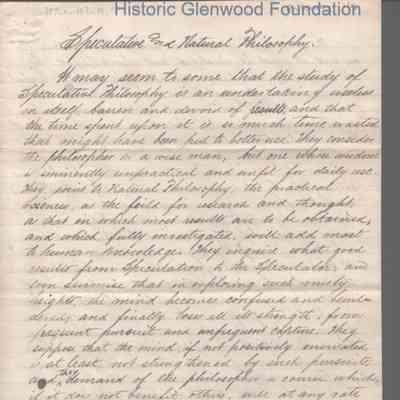 Historic Glenwood Foundation
Speculative and Natural Philosophy.
It may seem to some that the study of
Speculative Philosophy is an undertaking useless
in itself, barren and devoid of results and that
the time spent upon it is so much time wasted
that might have been put to better use. They consider
the philosopher as a wise man, but one whose wisdom
is eminently unpractical and unfit for daily use.
They point to Natural Philosophy, the practical
sciences, as the field for research and thought,
as that in which most results are to be obtained,
and which fully investigated, will add most
to human knowledge. They inquire what good
results from Speculation to the Speculator, and
even surmise that in exploring such
heights the mind becomes confused and
and finally loses all its strength, from
present pursuit and unfrequent capture. They
suppose that the mind, if not positively enervated,
is at least not strengthened by such pursuits
and, they demand of the philosopher a course which,
if it does not benefit others, will at any rate